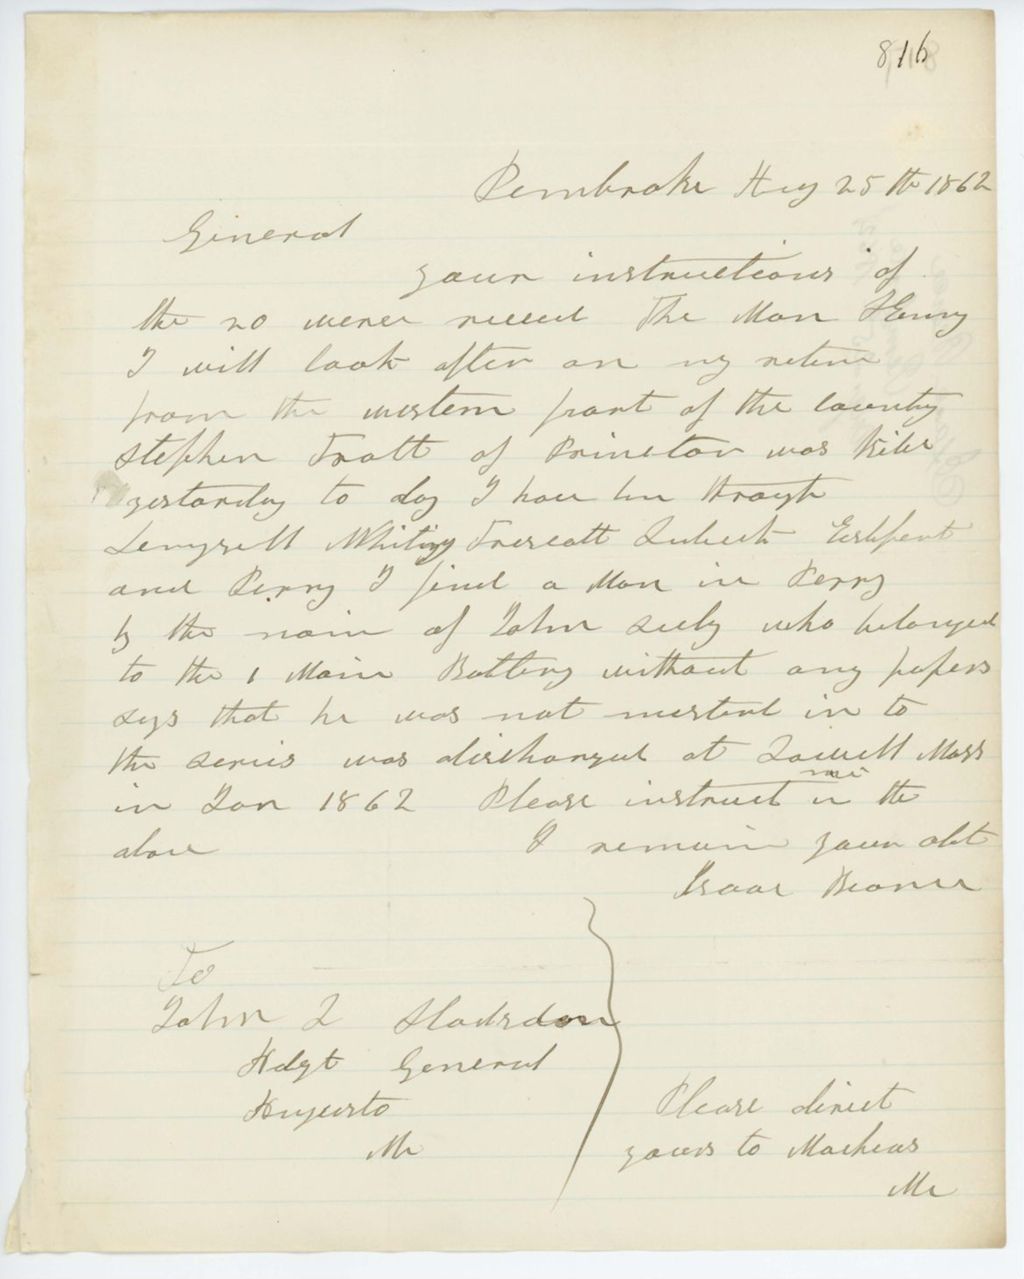 816
Pembroke Aug 25th 1862
General
your instructions of
the 20 were receed The Man Henry
I will look after on my return
from the western part of the County
Stephen Trott of Prinston was
yestarday to day I have ben throught
Whiting Trescott Lubeck Eastport
and Perry I find a Man in Perry
by the naim of John Seely who belonged
to the 1 Main Battery without any papers
says that he was not mustend in to
the servis was discharged at Lowell Mass
in Jan 1862 Please instruct me in the
above I remain your obt
Isaac
To
John L Hodsdon
Adgt General
Augusta
Me
Please direct
yours to Machias
Me